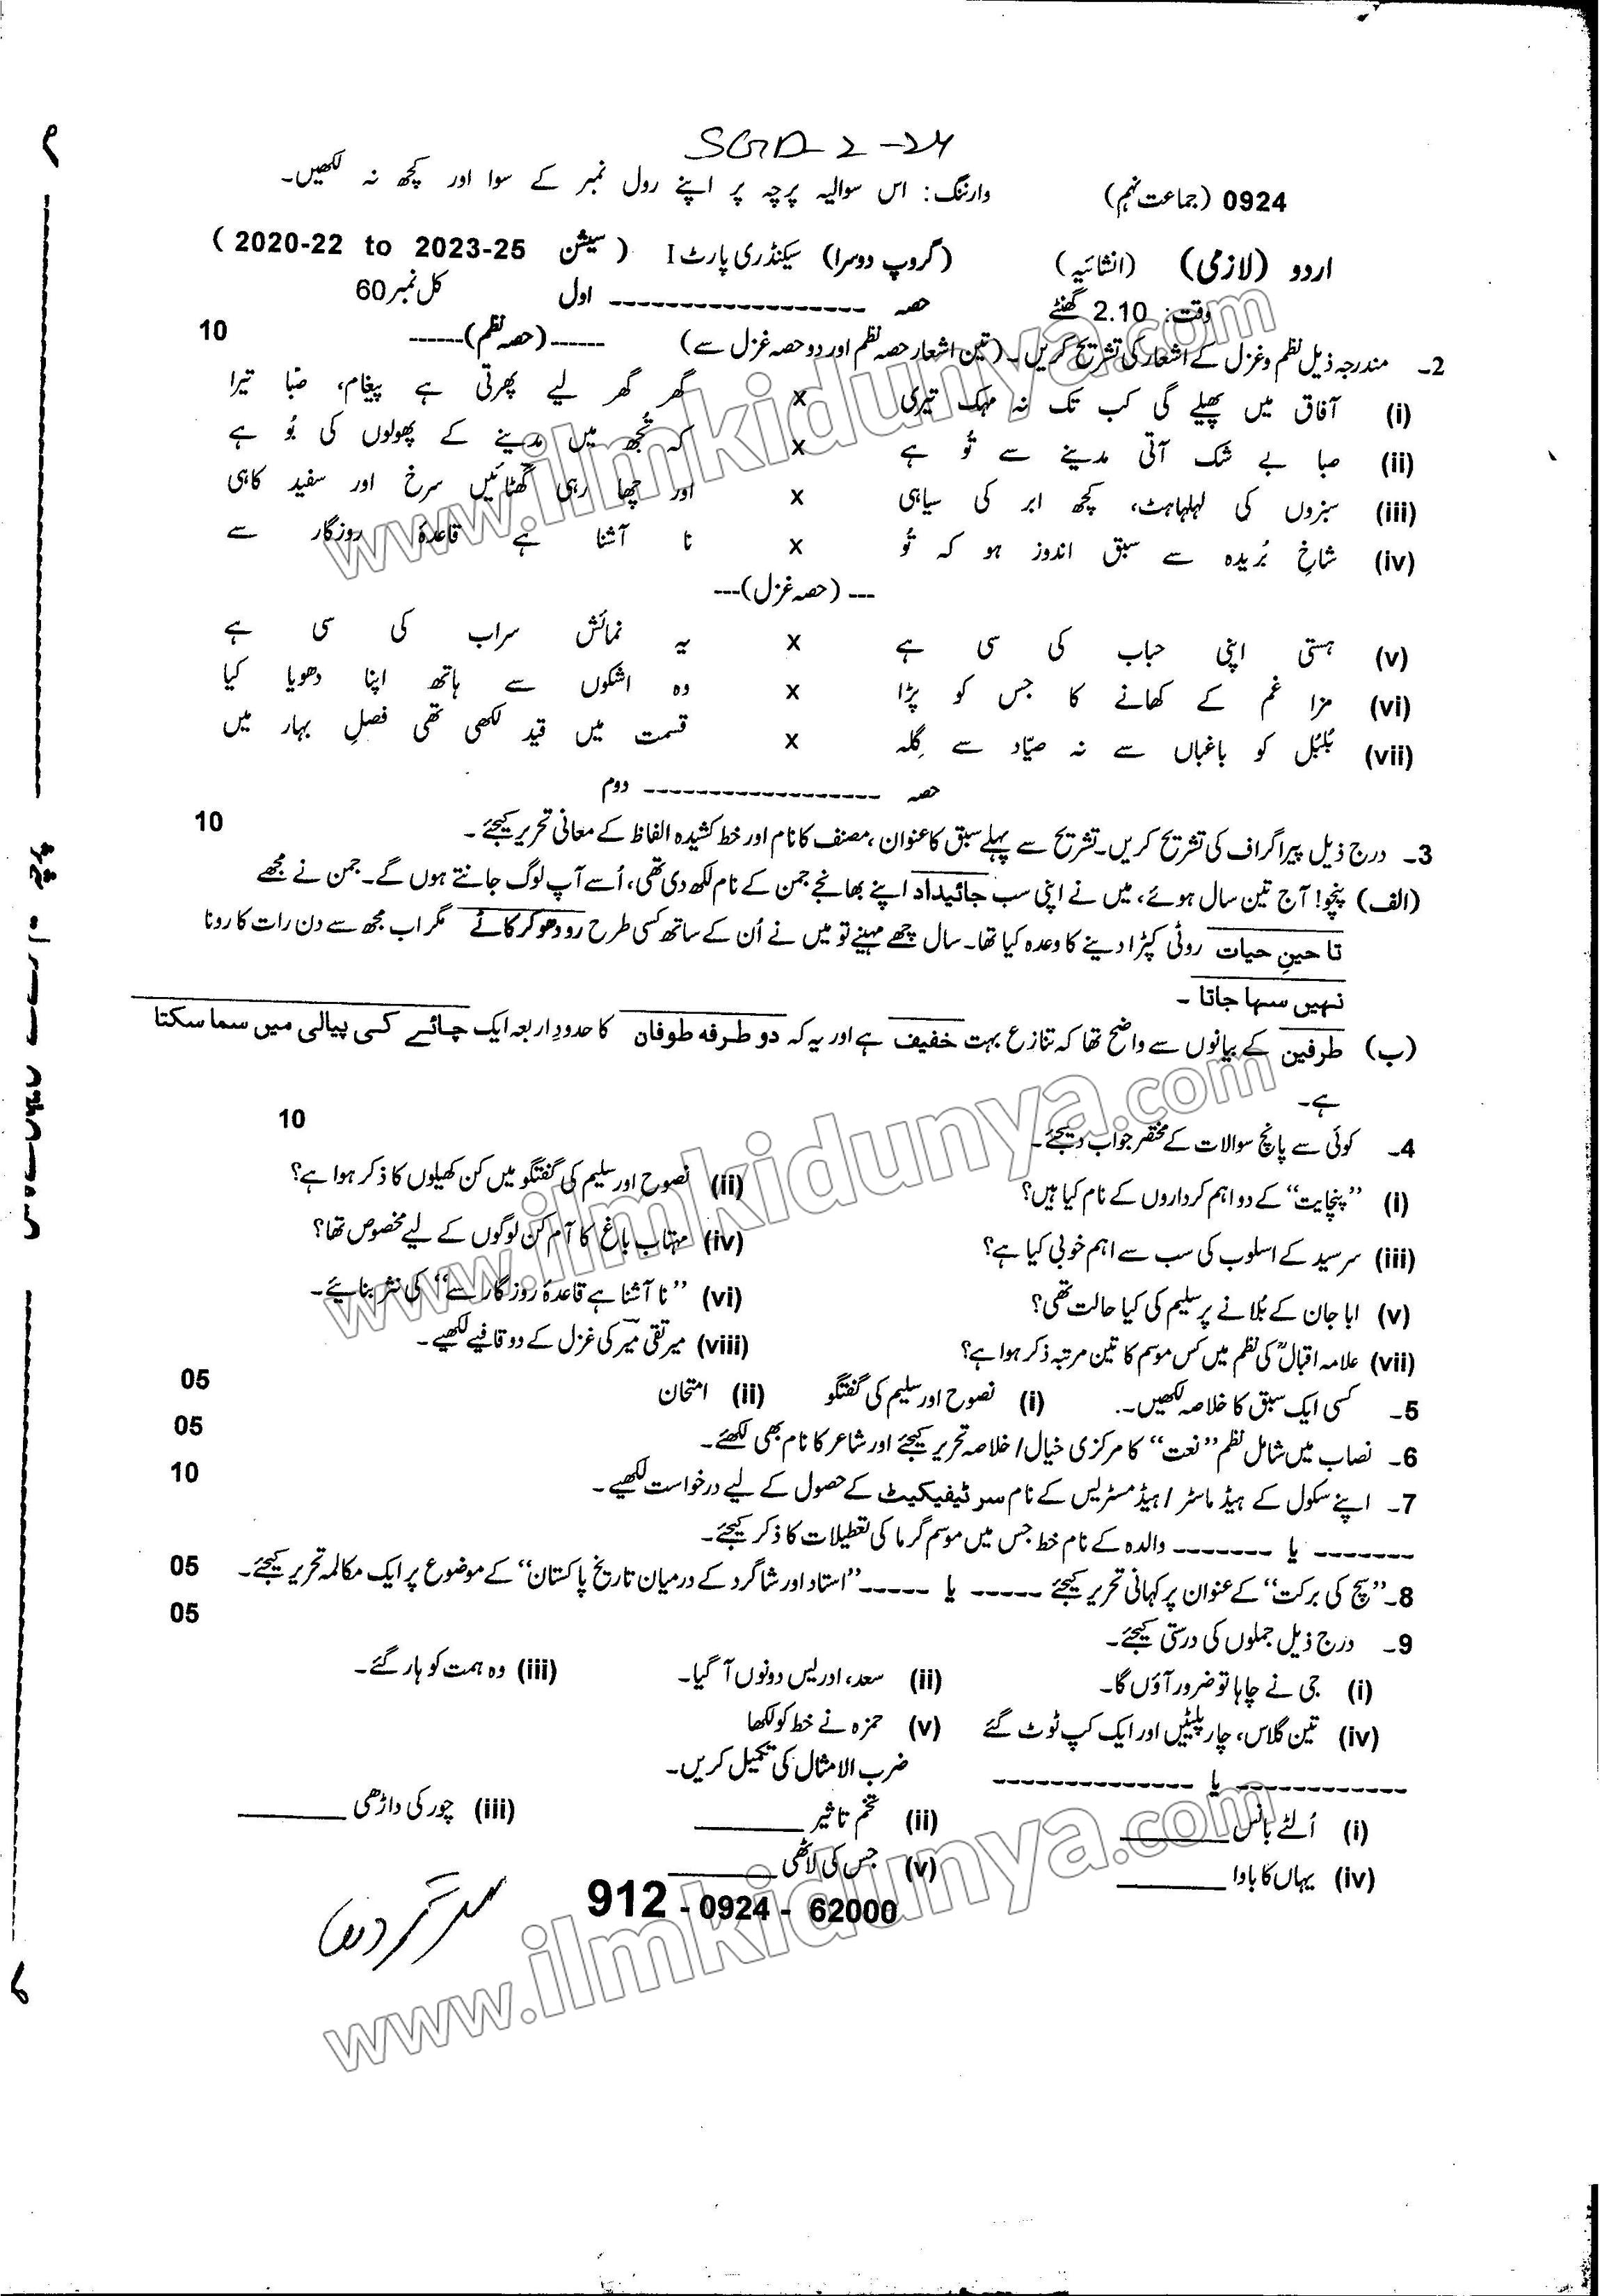 SGD-2-24
0924 (جماعت نہم) وارننگ: اس سوالیہ پرچہ پر اپنے رول نمبر کے سوا اور کچھ نہ لکھیں۔
اردو (لازمی) (انشائیہ) (گروپ دوسرا) سیکنڈری پارٹ I (سیشن 2020-22 to 2023-25)
وقت: 2.10 گھنٹے حصہ ------------------ اول کل نمبر 60
2۔ مندرجہ ذیل نظم و غزل کے اشعار کی تشریح کریں۔ (تین اشعار حصہ نظم اور دو حصہ غزل سے) ------(حصہ نظم)------ 10
(i) آفاق میں پھیلے گی کب تک نہ مہک تیری x گھر گھر لیے پھرتی ہے پیغام، صبا تیرا
(ii) صبا بے شک آتی مدینے سے تُو ہے x کہ تُجھ میں مدینے کے پھولوں کی بُو ہے
(iii) سبزوں کی لہلہاہٹ، کچھ ابر کی سیاہی x اور چھا رہی گھٹائیں سرخ اور سفید کاہی
(iv) شاخِ بُریدہ سے سبق اندوز ہو کہ تُو x نا آشنا ہے قاعدۂ روزگار سے
---(حصہ غزل)---
(v) ہستی اپنی حباب کی سی ہے x یہ نمائش سراب کی سی ہے
(vi) مزا غم کے کھانے کا جس کو پڑا x وہ اشکوں سے ہاتھ اپنا دھویا کیا
(vii) بُلبُل کو باغباں سے نہ صیّاد سے گِلہ x قسمت میں قید لکھی تھی فصلِ بہار میں
حصہ ------------------ دوم
3۔ درج ذیل پیراگراف کی تشریح کریں۔ تشریح سے پہلے سبق کا عنوان، مصنف کا نام اور خط کشیدہ الفاظ کے معانی تحریر کیجئے۔ 10
(الف) پنچو! آج تین سال ہوئے، میں نے اپنی سب جائیداد اپنے بھانجے جمن کے نام لکھ دی تھی، اُسے آپ لوگ جانتے ہوں گے۔ جمن نے مجھے
تا حینِ حیات روٹی کپڑا دینے کا وعدہ کیا تھا۔ سال چھے مہینے تو میں نے اُن کے ساتھ کسی طرح رو دھو کر کاٹے مگر اب مجھ سے دن رات کا رونا
نہیں سہا جاتا۔
(ب) طرفین کے بیانوں سے واضح تھا کہ تنازع بہت خفیف ہے اور یہ کہ دو طرفہ طوفان کا حدودِ اربعہ ایک چائے کی پیالی میں سما سکتا
ہے۔
4۔ کوئی سے پانچ سوالات کے مختصر جواب دیجئے۔ 10
(i) ”پنچایت“ کے دو اہم کرداروں کے نام کیا ہیں؟ (ii) نصوح اور سلیم کی گفتگو میں کن کھیلوں کا ذکر ہوا ہے؟
(iii) سرسید کے اسلوب کی سب سے اہم خوبی کیا ہے؟ (iv) مہتاب باغ کا آم کن لوگوں کے لیے مخصوص تھا؟
(v) ابا جان کے بُلانے پر سلیم کی کیا حالت تھی؟ (vi) ”نا آشنا ہے قاعدۂ روزگار سے“ کی نثر بنائیے۔
(vii) علامہ اقبالؒ کی نظم میں کس موسم کا تین مرتبہ ذکر ہوا ہے؟ (viii) میر تقی میر کی غزل کے دو قافیے لکھیے۔
5۔ کسی ایک سبق کا خلاصہ لکھیں۔ (i) نصوح اور سلیم کی گفتگو (ii) امتحان 05
6۔ نصاب میں شامل نظم ”نعت“ کا مرکزی خیال/خلاصہ تحریر کیجئے اور شاعر کا نام بھی لکھئے۔ 05
7۔ اپنے سکول کے ہیڈ ماسٹر/ہیڈ مسٹریس کے نام سرٹیفیکیٹ کے حصول کے لیے درخواست لکھیے۔ 10
------- یا ------- والدہ کے نام خط جس میں موسم گرما کی تعطیلات کا ذکر کیجئے۔
8۔ ”سچ کی برکت“ کے عنوان پر کہانی تحریر کیجئے ----- یا ----- ”استاد اور شاگرد کے درمیان تاریخ پاکستان“ کے موضوع پر ایک مکالمہ تحریر کیجئے۔ 05
9۔ درج ذیل جملوں کی درستی کیجئے۔ 05
(i) جی نے چاہا تو ضرور آؤں گا۔ (ii) سعد، ادریس دونوں آ گیا۔ (iii) وہ ہمت کو ہار گئے۔
(iv) تین گلاس، چار پلیٹیں اور ایک کپ ٹوٹ گئے (v) حمزہ نے خط کو لکھا
------------ یا -------------- ضرب الامثال کی تکمیل کریں۔
(i) اُلٹے بانس ________ (ii) تخم تاثیر ________ (iii) چور کی داڑھی ________
(iv) یہاں کا باوا ________ (v) جس کی لاٹھی ________
912 - 0924 - 62000
www.ilmkidunya.com
www.ilmkidunya.com
www.ilmkidunya.com